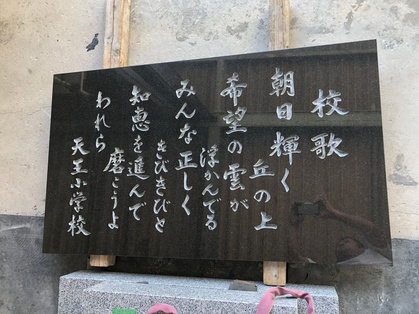 校歌
朝日輝く
丘の上
希望の雲が
浮かんでる
みんな正しく
きびきびと
知恵を進んで
磨こうよ
われら
天王小学校